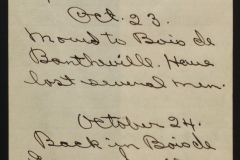 Oct. 23.
Moved to Bois de
Bantheville. Have
lost several men.
October 24.
Back in Bois de